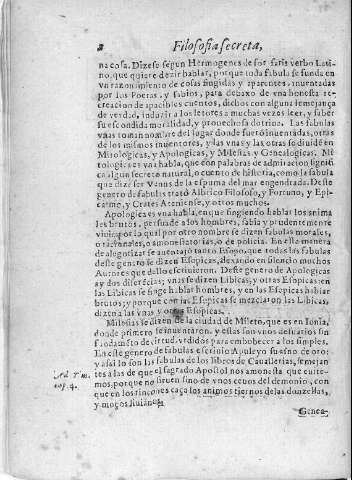 2
Filosofia secreta,
na cosa. Dizese segun Hermogenes de for faris verbo Lati-
no, que quiere dezir hablar, porque toda fabula se funda en
vn razonamiento de cosas fingidas y aparentes, inuentadas
por los Poetas, y sabios, para debaxo de vna honesta re-
creacion de apacibles cuentos, dichos con alguna semejança
de verdad, induzir a los letores a muchas vezes leer, y saber
su escondida moralidad, y prouechosa dotrina. Las fabulas
vnas toman nombre del lugar donde fueró inuentadas, otras
de los mismos inuentores, y las vnas y las otras se diuidē en
Mitologicas, y Apologicas, y Milesias y Genealogicas. Mi-
tologica es vna habla, que con palabras de admiracion signifi
ca algun secreto natural, o cuento de historia, como la fabula
que dize ser Venus de la espuma del mar engendrada. Deste
genero de fabulas trató Albrico Filosofo, y Fornuto, y Epi-
carmo, y Crates Ateniense, y otros muchos.
Apologica es vna habla, en que fingiendo hablar los anima
les brutos, persuade a los hombres, sabia y prudentemente
viuir, por lo qual por otro nombre se dizen fabulas morales,
o racionales, o amonestatorias, o de policia. En esta manera
de alegorizar se auentajó tanto Esopo, que todas las fabulas
deste genero se dizen Esopicas, dexando en silencio muchos
Autores que dello escriuieron. Deste genero de Apologicas
ay dos diferencias; vnas se dizen Libicas, y otras Esopicas: en
las Libicas se finge hablar hombres, y en las Esopicas hablar
brutos; y porque con las Esopicas se mezclaron las Libicas,
dizen a las vnas y otras Esopicas.
Milesias se dizen de la ciudad de Mileto, que es en Ionia,
donde primero se inuentaron, y estas son vnos desuarios sin
fundamento de virtud, vrdidos para embobecer a los simples.
En este genero de fabulas escriuio Apuleyo su asno de oro:
y assi lo son las fabulas de los libros de Cauallerias, semejan-
tes a las de que el sagrado Apostol nos amonesta que euite-
mos, porque no siruen sino de vnos ceuos del demonio, con
que en los rincones caça los animos tiernos de las donzellas,
y moços liuianos.
cap. 4.
Genea-